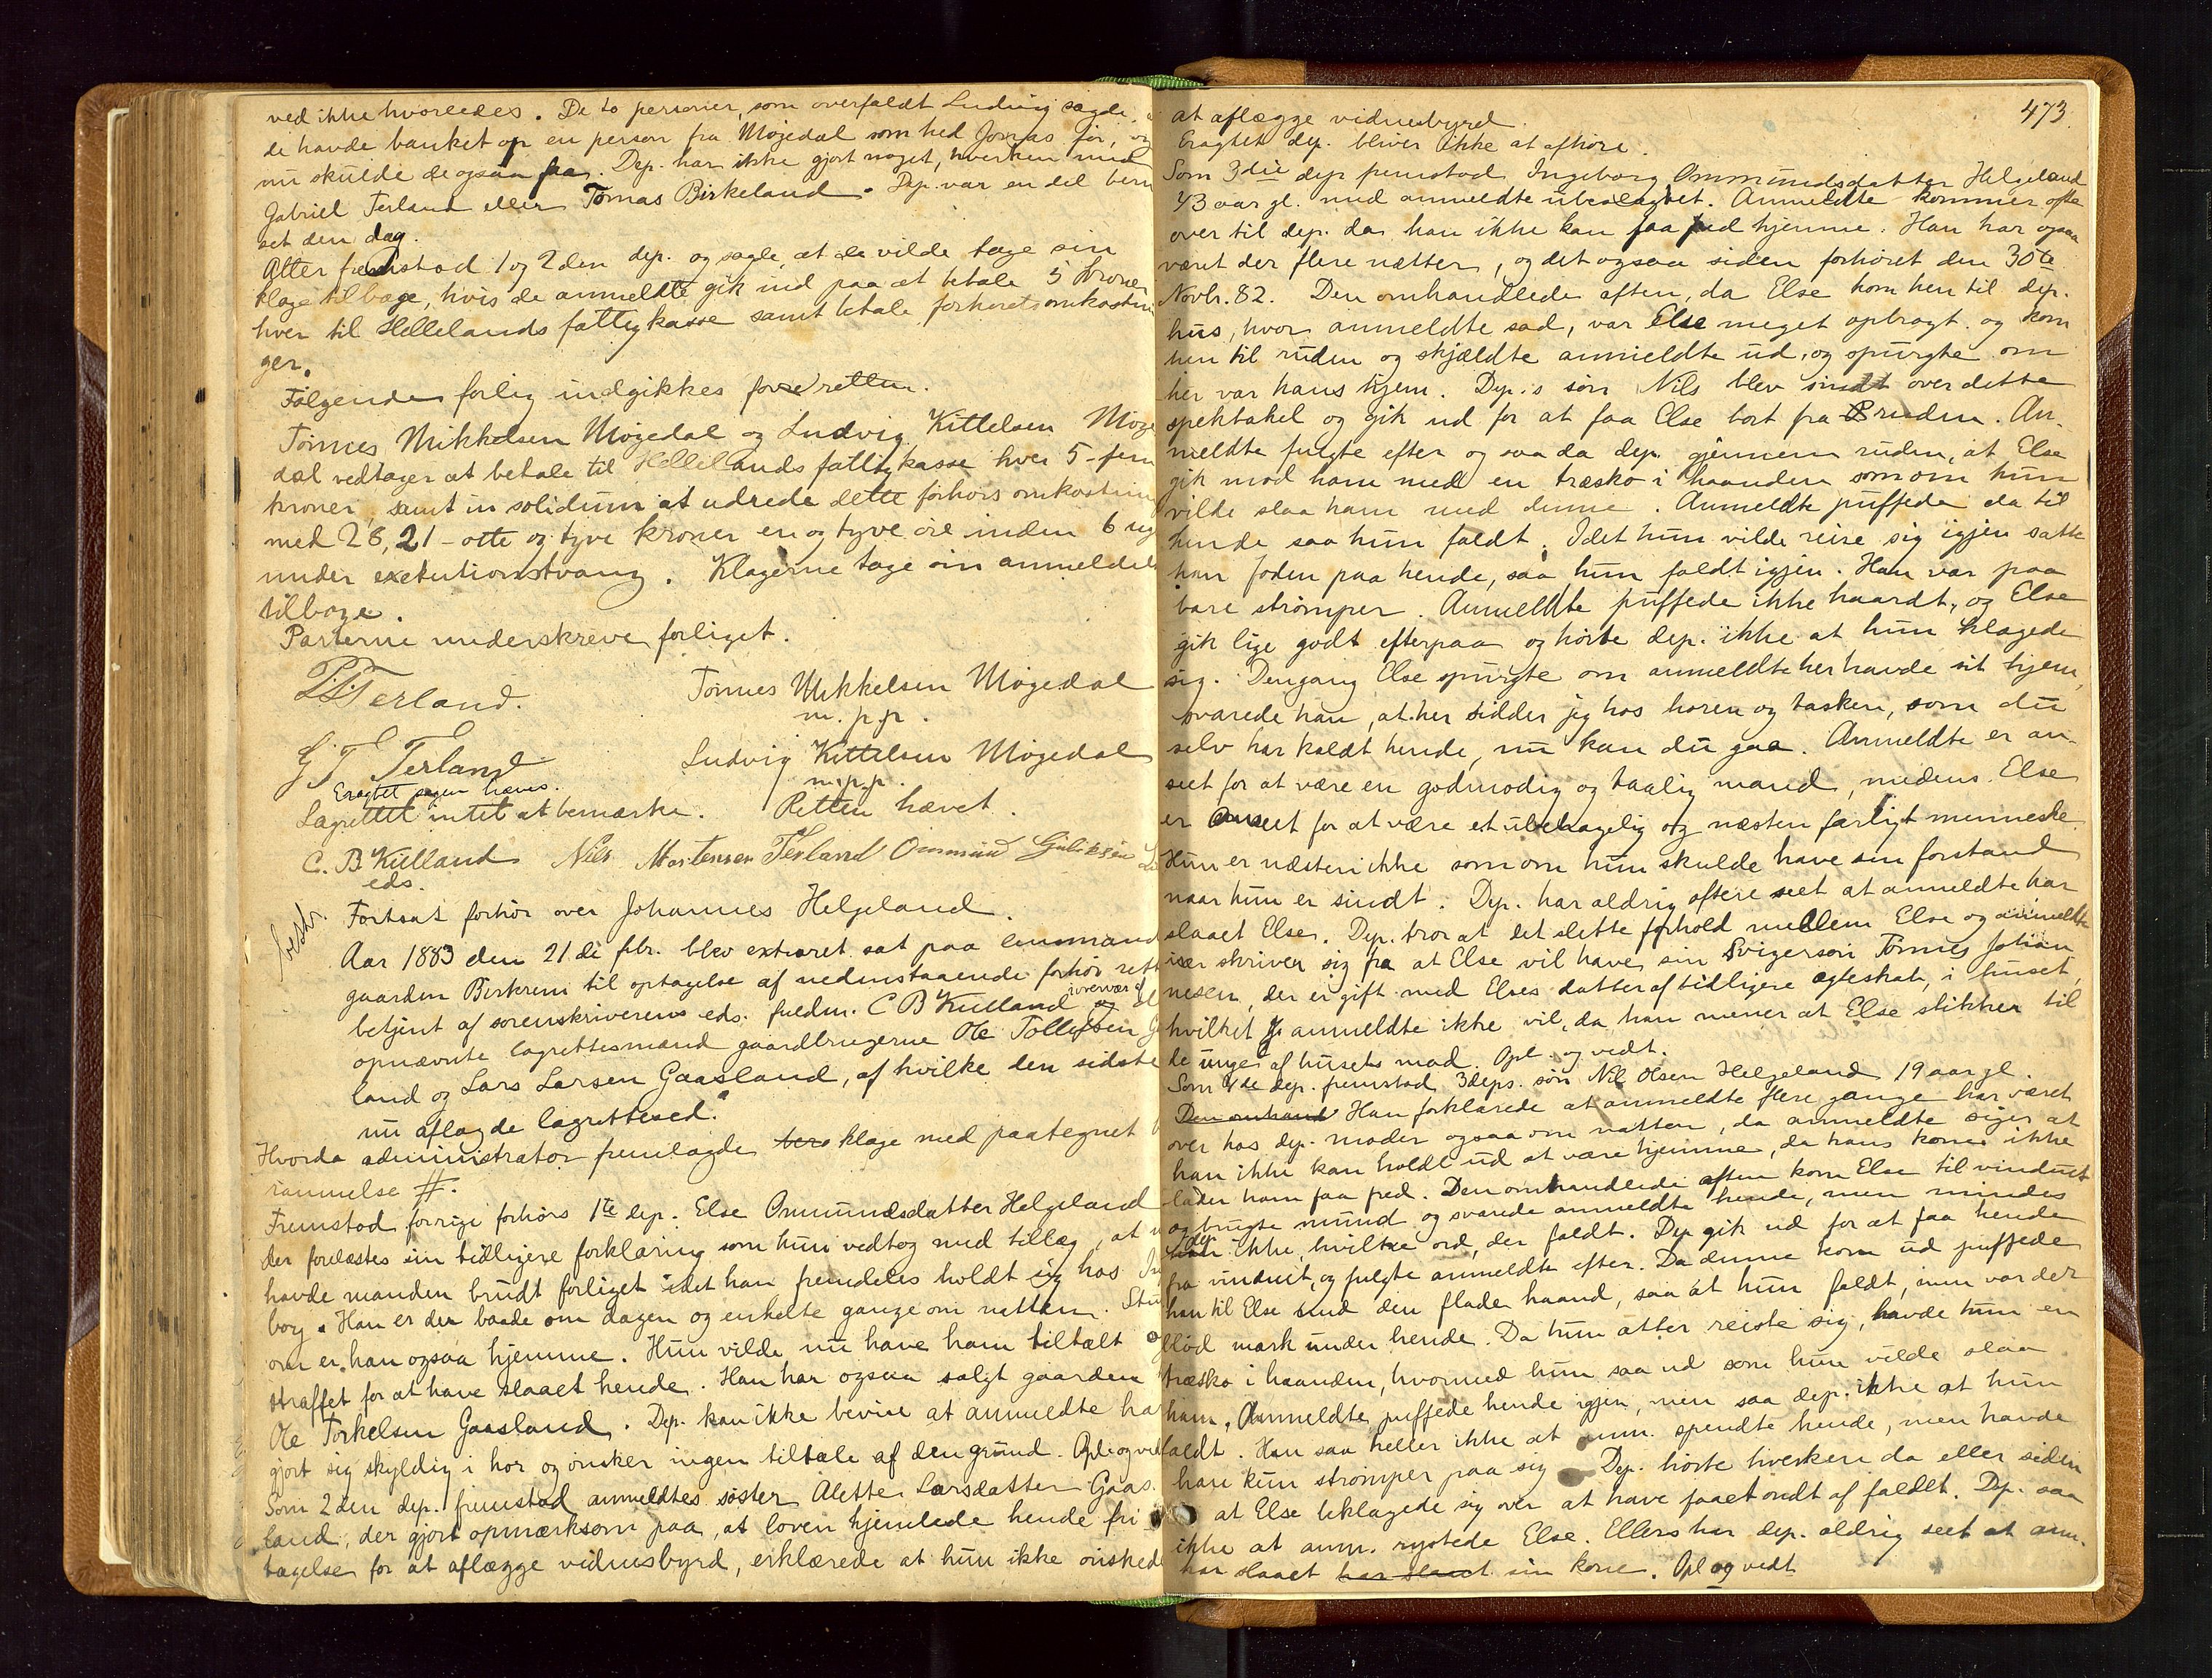 ved ikke hvorledes. De to personer, som overfaldt Ludvig sagde,
de havde banket op en person fra Møgedal som hed Jonas før, og
nu skulde de ogsaa faa. Dep. har ikke gjort noget, hverken med
Gabriel Terland eller Tønnas Birkeland. Dep. var en del beru
set den dag.
Atter fremstod 1 og 2den dep. og sagde at de vilde tage sin
klage tilbage, hvis de anmeldte gik ind paa at betale 5 kroner
hver til Hellelands fattigkasse samt betale forhørets omkostnin
ger.
Følgende forlig indgikkes for retten.
Tønnes Mikkelsen Møgedal og Ludvig Kittelsen Møge
dal vedtager at betale til Hellelands fattigkasse hver 5 - fem
kroner, samt in solidum at udrede dette forhørs omkostnin
med 28,21 - otte og tyve kroner en og tyve øre inden 6 ug
under exekutionstvang. Klagerne tage sin anmeldel
tilbage.
Parterne underskreve forliget.
Terland. Tønnes Mikkelsen Møgedal
m. p. p.
G T Terland Ludvig Kittelsen Møgedal
m.p.p.
Eragtet sagen hæves.
Lagrettet intet at bemærke. Retten hævet.
C. B Kulland Nils Mortensen Terland Ommund Guliksen
eds.
besk.
Fortsat forhør over Johannes Helgeland.
Aar 1883 den 21 de febr. blev extraret sat paa lensmand
gaarden Birkrem til optagelse af nedenstaaende forhør rett
betjent af sorenskriverens eds. fuldm. C B Kulland i overvær af
opnævnte lagrettesmænd gaardbrugerne Ole Tollefsen
land og Lars Larsen Gaasland, af hvilke den sidste
nu aflagde lagretteed.
Hvorda administrator fremlagde klage med paategnet
rammelse #.
Fremstod forrige forhørs 1te dep. Else Ommundsdatter Helgeland
der forelæstes sin tidligere forklaring som hun vedtog med tillæg, at
havde manden brudt forliget idet han fremdeles holdt sig hos In
borg. Han er der baade om dagen og enkelte gange om natten. Stu
om er han ogsaa hjemme. Hun vilde nu have ham tiltalt og
straffet for at have slaaet hende. Han har ogsaa solgt gaarden
Ole Torkelsen Gaasland. Dep. kan ikke bevise at anmeldte ha
gjort sig skyldig i hor og ønsker ingen tiltale af den grund. Opl. og ved
Som 2den dep. fremstod anmeldtes søster Alette Larsdatter Gaas
land, der gjort opmærksom paa, at loven hjemlede hende fri
tagelse for at aflægge vidnesbyrd, erklærede at hun ikke ønskede
473.
at aflægge vidnesbyrd.
Eragtet dep. bliver ikke at afhøre.
Som 3die dep fremstod Ingeborg Ommundsdatter Helgeland
43 aar gl. med anmeldte ubeslægtet. Anmeldte kommer ofte
over til dep. da han ikke kan faa fred hjemme. Han har ogsaa
været der flere nætter, og det ogsaa siden forhøret den 30te
Novbr. 82. Den omhandlede aften, da Else kom hen til dep.
hus, hvor anmeldte sad, var Else meget opbragt og kom
hen til ruden og skjældte anmeldte ud, og spurgte om
her var hans hjem. Dep.s søn Nils blev sindt over dette
spektakel og gik ud for at faa Else bort fra ruden. An-
meldte fulgte efter og saa da dep. gjennem ruden, at Else
gik mod ham med en træsko i haanden som om hun
vilde slaa ham med denne. Anmeldte puffede da til
hende saa hun faldt. Idet hun vilde reise sig igjen satte
han foden paa hende, saa hun faldt igjen. Han var paa
bare strømper. Anmeldte puffede ikke haardt, og Else
gik lige godt efterpaa og hørte dep. ikke at hun klagede
sig. Dengang Else spurgte om anmeldte her havde sit hjem,
svarede han, at her sidder jeg hos horen og tasken, som du
selv har kaldt hende, nu kan du gaa. Anmeldte er an-
seet for at være en godmodig og taalig mand, medens Else
er anseet for at være et ubehagelig og næsten farligt menneske.
Hun er næsten ikke som om hun skulde have sin forstand
naar hun er sindt. Dep. har aldrig oftere seet at anmeldte har
slaaet Else. Dep. tror at det slette forhold mellem Else og anmeldte
især skriver sig fra at Else vil have sin Svigersøn Tønnes Johan
nesen, der er gift med Elses datter af tidligere ægteskab, i huset,
hvilket anmeldte ikke vil, da han mener at Else stikker til
de unge af husets mad. Opl. og vedt.
Som 4de dep. fremstod 3deps. søn Nil Olsen Helgeland 19 aar gl.
Den omhand Han forklarede at anmeldte flere gange har været
over hos dep. moder ogsaa om natten, da anmeldte siger at
han ikke kan holde ud at være hjemme, da hans kone ikke
lader ham faa fred. Den omhandlede aften kom Else til vinduet
og brugte mund og svarede anmeldte hende, men mindes
dep. ikke hvilke ord, der faldt. Dep gik ud for at faa hende
fra vinduet, og fulgte anmeldte efter. Da denne kom ud puffede
han til Else med den flade haand, saa at hun faldt, men var der
blød mark under hende. Da hun atter reiste sig, havde hun en
træsko i haanden, hvormed hun saa ud som hun vilde slaa
ham. Anmeldte puffede hende igjen, men saa dep. ikke at hun
faldt. Han saa heller ikke at anm. spendte hende, men havde
han kun strømper paa sig. Dep. hørte hverken da eller siden
at Else beklagede sig over at have faaet ondt af faldet. Dep. saa
ikke at anm. rystede Else. Ellers har dep. aldrig seet at anm.
har slaaet har slaaet sin kone. Opl og vedt